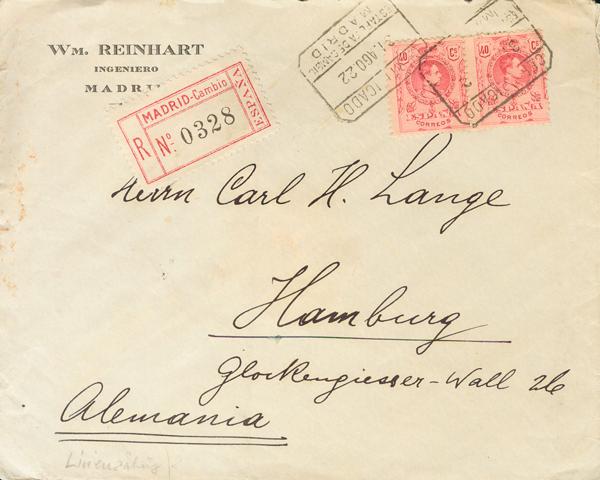 Wm. REINHART
INGENIERO
MADRI
MADRID-Cambio
R Nº 0328
ESPAÑA
ESTAFETA DE CAMBIO
MADRID
31 AGO 22
CERTIFICADO
40 Cs 40 Cs
CORREOS CORREOS
Herrn Carl H. Lange
Hamburg
Glockengiesser-Wall 26
Alemania